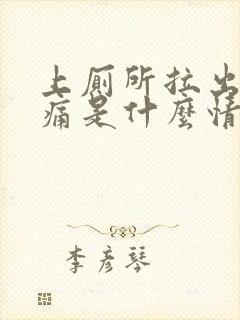 上厕所拉出
痛是什麼情
李彦琴